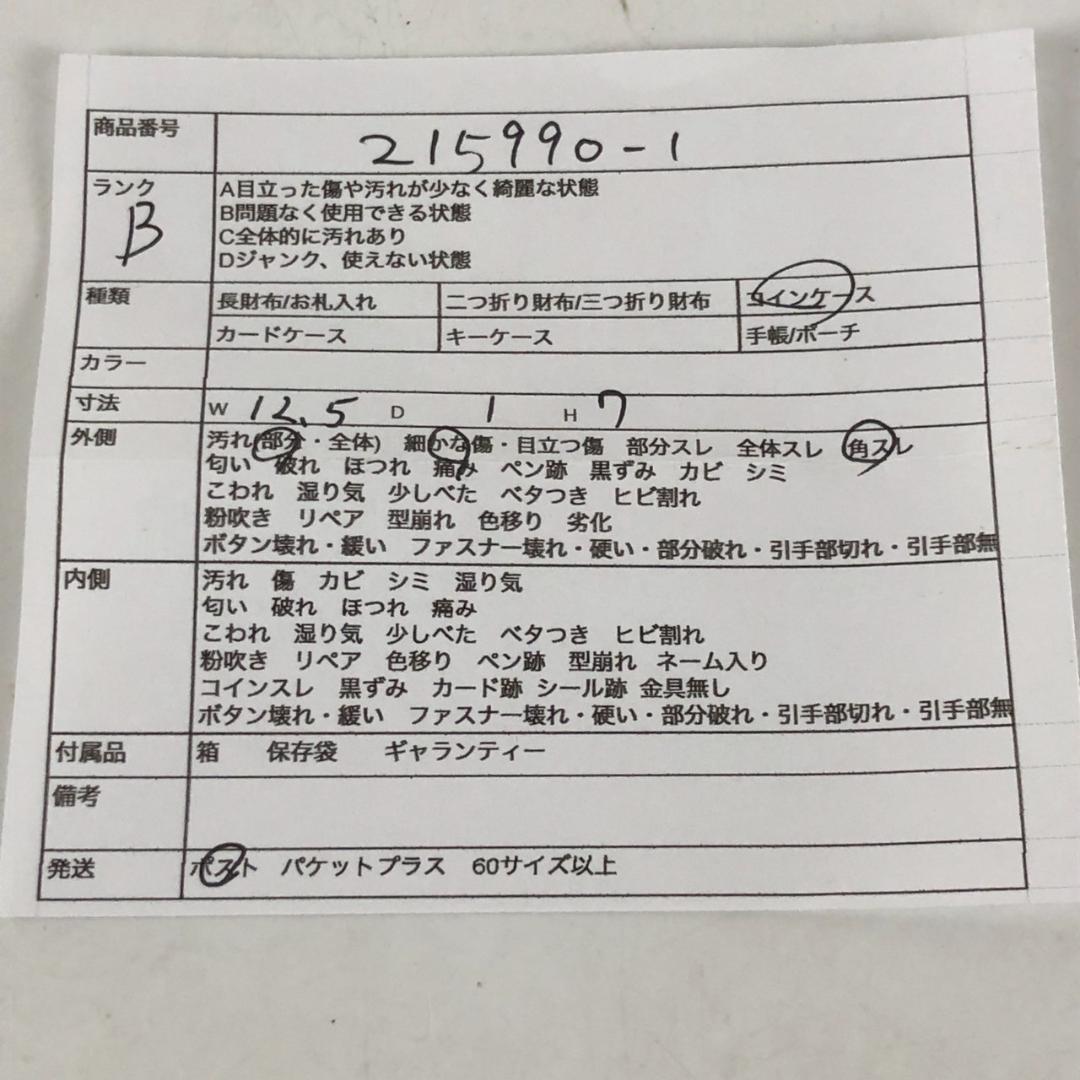 商品番号 215990-1
ランク B
A目立った傷や汚れが少なく綺麗な状態
B問題なく使用できる状態
C全体的に汚れあり
Dジャンク、使えない状態
種類 長財布/お札入れ 二つ折り財布/三つ折り財布 コインケース
カードケース キーケース 手帳/ポーチ
カラー
寸法 W 12.5 D 1 H 7
外側 汚れ(部分・全体) 細かな傷・目立つ傷 部分スレ 全体スレ 角スレ
匂い 破れ ほつれ 痛み ペン跡 黒ずみ カビ シミ
こわれ 湿り気 少しべた ベタつき ヒビ割れ
粉吹き リペア 型崩れ 色移り 劣化
ボタン壊れ・緩い ファスナー壊れ・硬い・部分破れ・引手部切れ・引手部無
内側 汚れ 傷 カビ シミ 湿り気
匂い 破れ ほつれ 痛み
こわれ 湿り気 少しべた ベタつき ヒビ割れ
粉吹き リペア 色移り ペン跡 型崩れ ネーム入り
コインスレ 黒ずみ カード跡 シール跡 金具無し
ボタン壊れ・緩い ファスナー壊れ・硬い・部分破れ・引手部切れ・引手部無
付属品 箱 保存袋 ギャランティー
備考
発送 ポスト パケットプラス 60サイズ以上